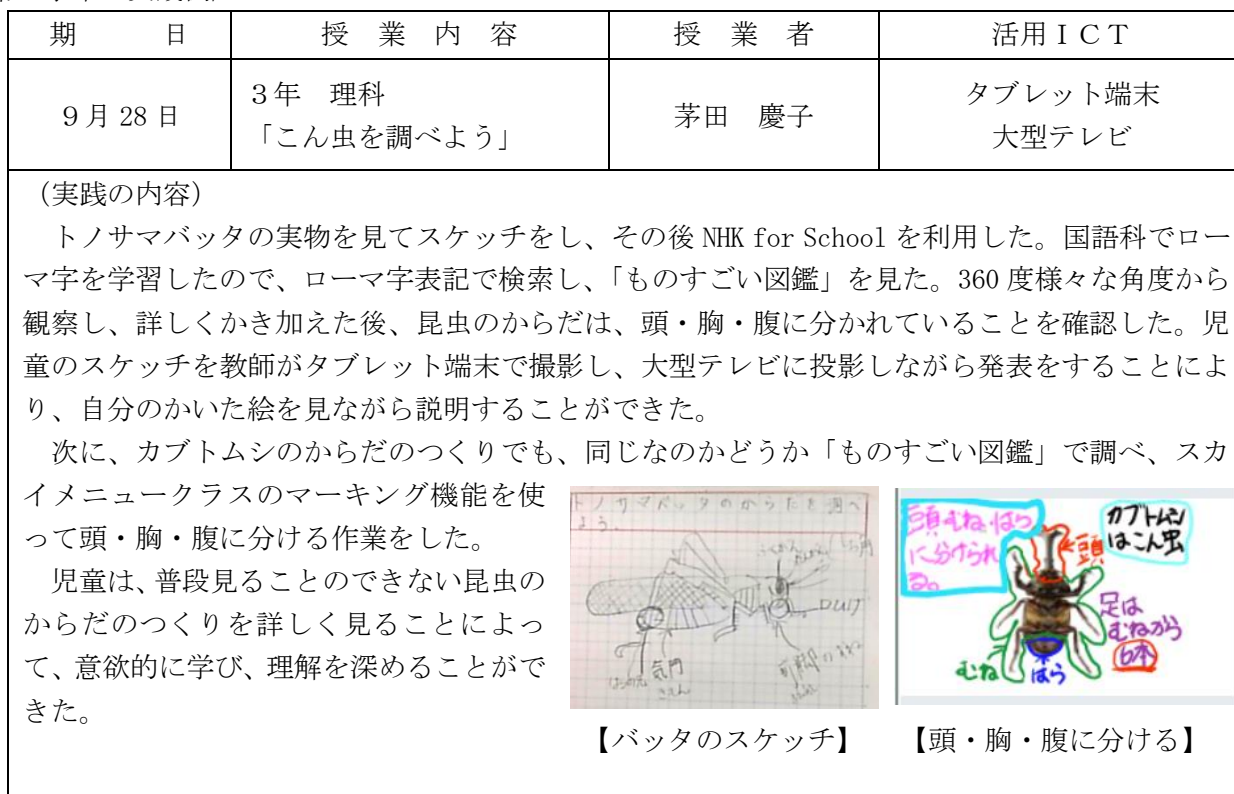 期　　日
授　業　内　容
授　業　者
活用ＩＣＴ
９月 28 日
３年　理科
「こん虫を調べよう」
茅田　慶子
タブレット端末
大型テレビ
（実践の内容）
トノサマバッタの実物を見てスケッチをし、その後 NHK for School を利用した。国語科でロー
マ字を学習したので、ローマ字表記で検索し、「ものすごい図鑑」を見た。360 度様々な角度から
観察し、詳しくかき加えた後、昆虫のからだは、頭・胸・腹に分かれていることを確認した。児
童のスケッチを教師がタブレット端末で撮影し、大型テレビに投影しながら発表をすることによ
り、自分のかいた絵を見ながら説明することができた。
次に、カブトムシのからだのつくりでも、同じなのかどうか「ものすごい図鑑」で調べ、スカ
イメニュークラスのマーキング機能を使
って頭・胸・腹に分ける作業をした。
児童は、普段見ることのできない昆虫の
からだのつくりを詳しく見ることによっ
て、意欲的に学び、理解を深めることがで
きた。
トノサマバッタのからだを調べ
よう。
気門
頭・むね・はら
に分けられ
る。
カブトムシ
はこん虫
頭
足は
むねから
6本
むね
はら
【バッタのスケッチ】
【頭・胸・腹に分ける】